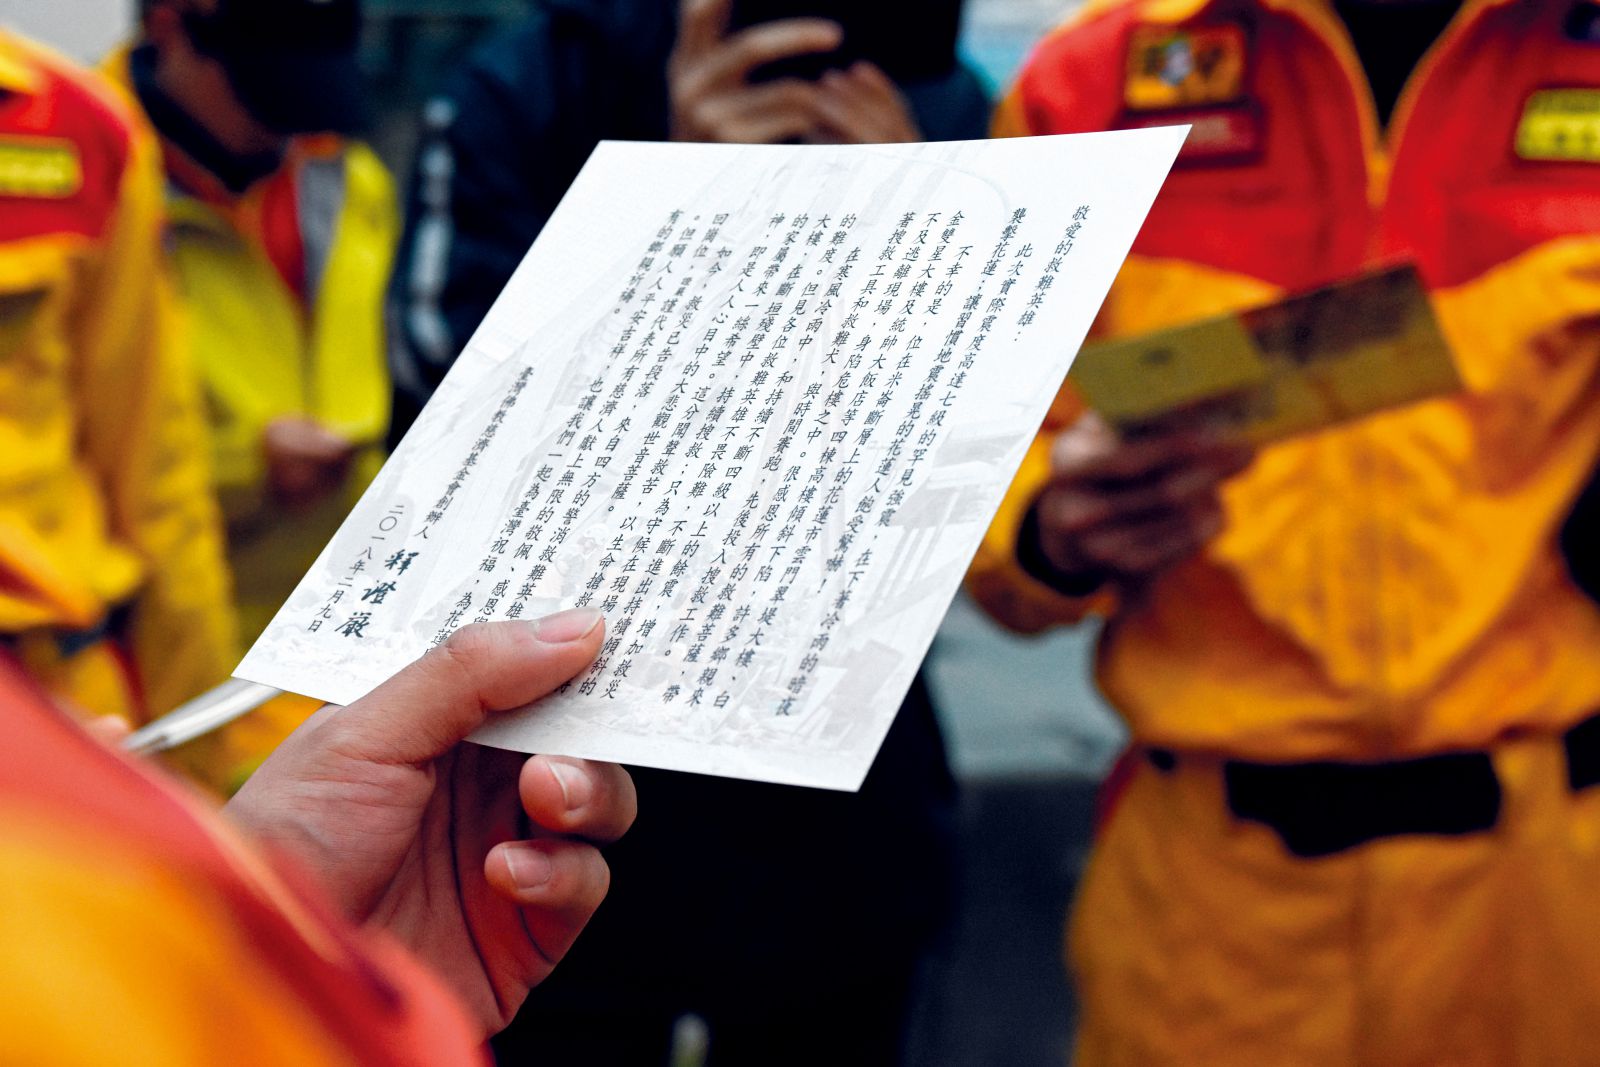 敬愛的救難英雄：
此次實際震度高達七級的罕見強震，在下著冷雨的暗夜
襲擊花蓮；讓習慣地震搖晃的花蓮人飽受驚嚇！
不幸的是，位在米崙斷層上的花蓮市雲門翠堤大樓、白
金雙星大樓及統帥大飯店等四棟高樓傾斜下陷，許多鄉親來
不及逃離現場，身陷危樓之中。很感恩所有的救難菩薩，帶
著搜救工具和救難犬，與時間賽跑，先後投入搜救工作。
在寒風冷雨中，和持續不斷四級以上的餘震，增加救災
的難度。但見各位救難英雄不畏險難，不斷進出持續傾斜的
大樓，在斷垣殘壁中，持續搜救；只為守候在現場
的家屬帶來一線希望。這分聞聲救苦，以生命搶救
神，即是人人心目中的大悲觀世音菩薩。
如今，救災已告段落，來自四方的警消救難英雄
回崗位，證嚴謹代表所有慈濟人獻上無限的敬佩、感恩與
。但願人人平安吉祥，也讓我們一起為臺灣祝福，為花蓮
有的鄉親祈禱。
臺灣佛教慈濟基金會創辦人 釋證嚴
二〇一八年二月九日